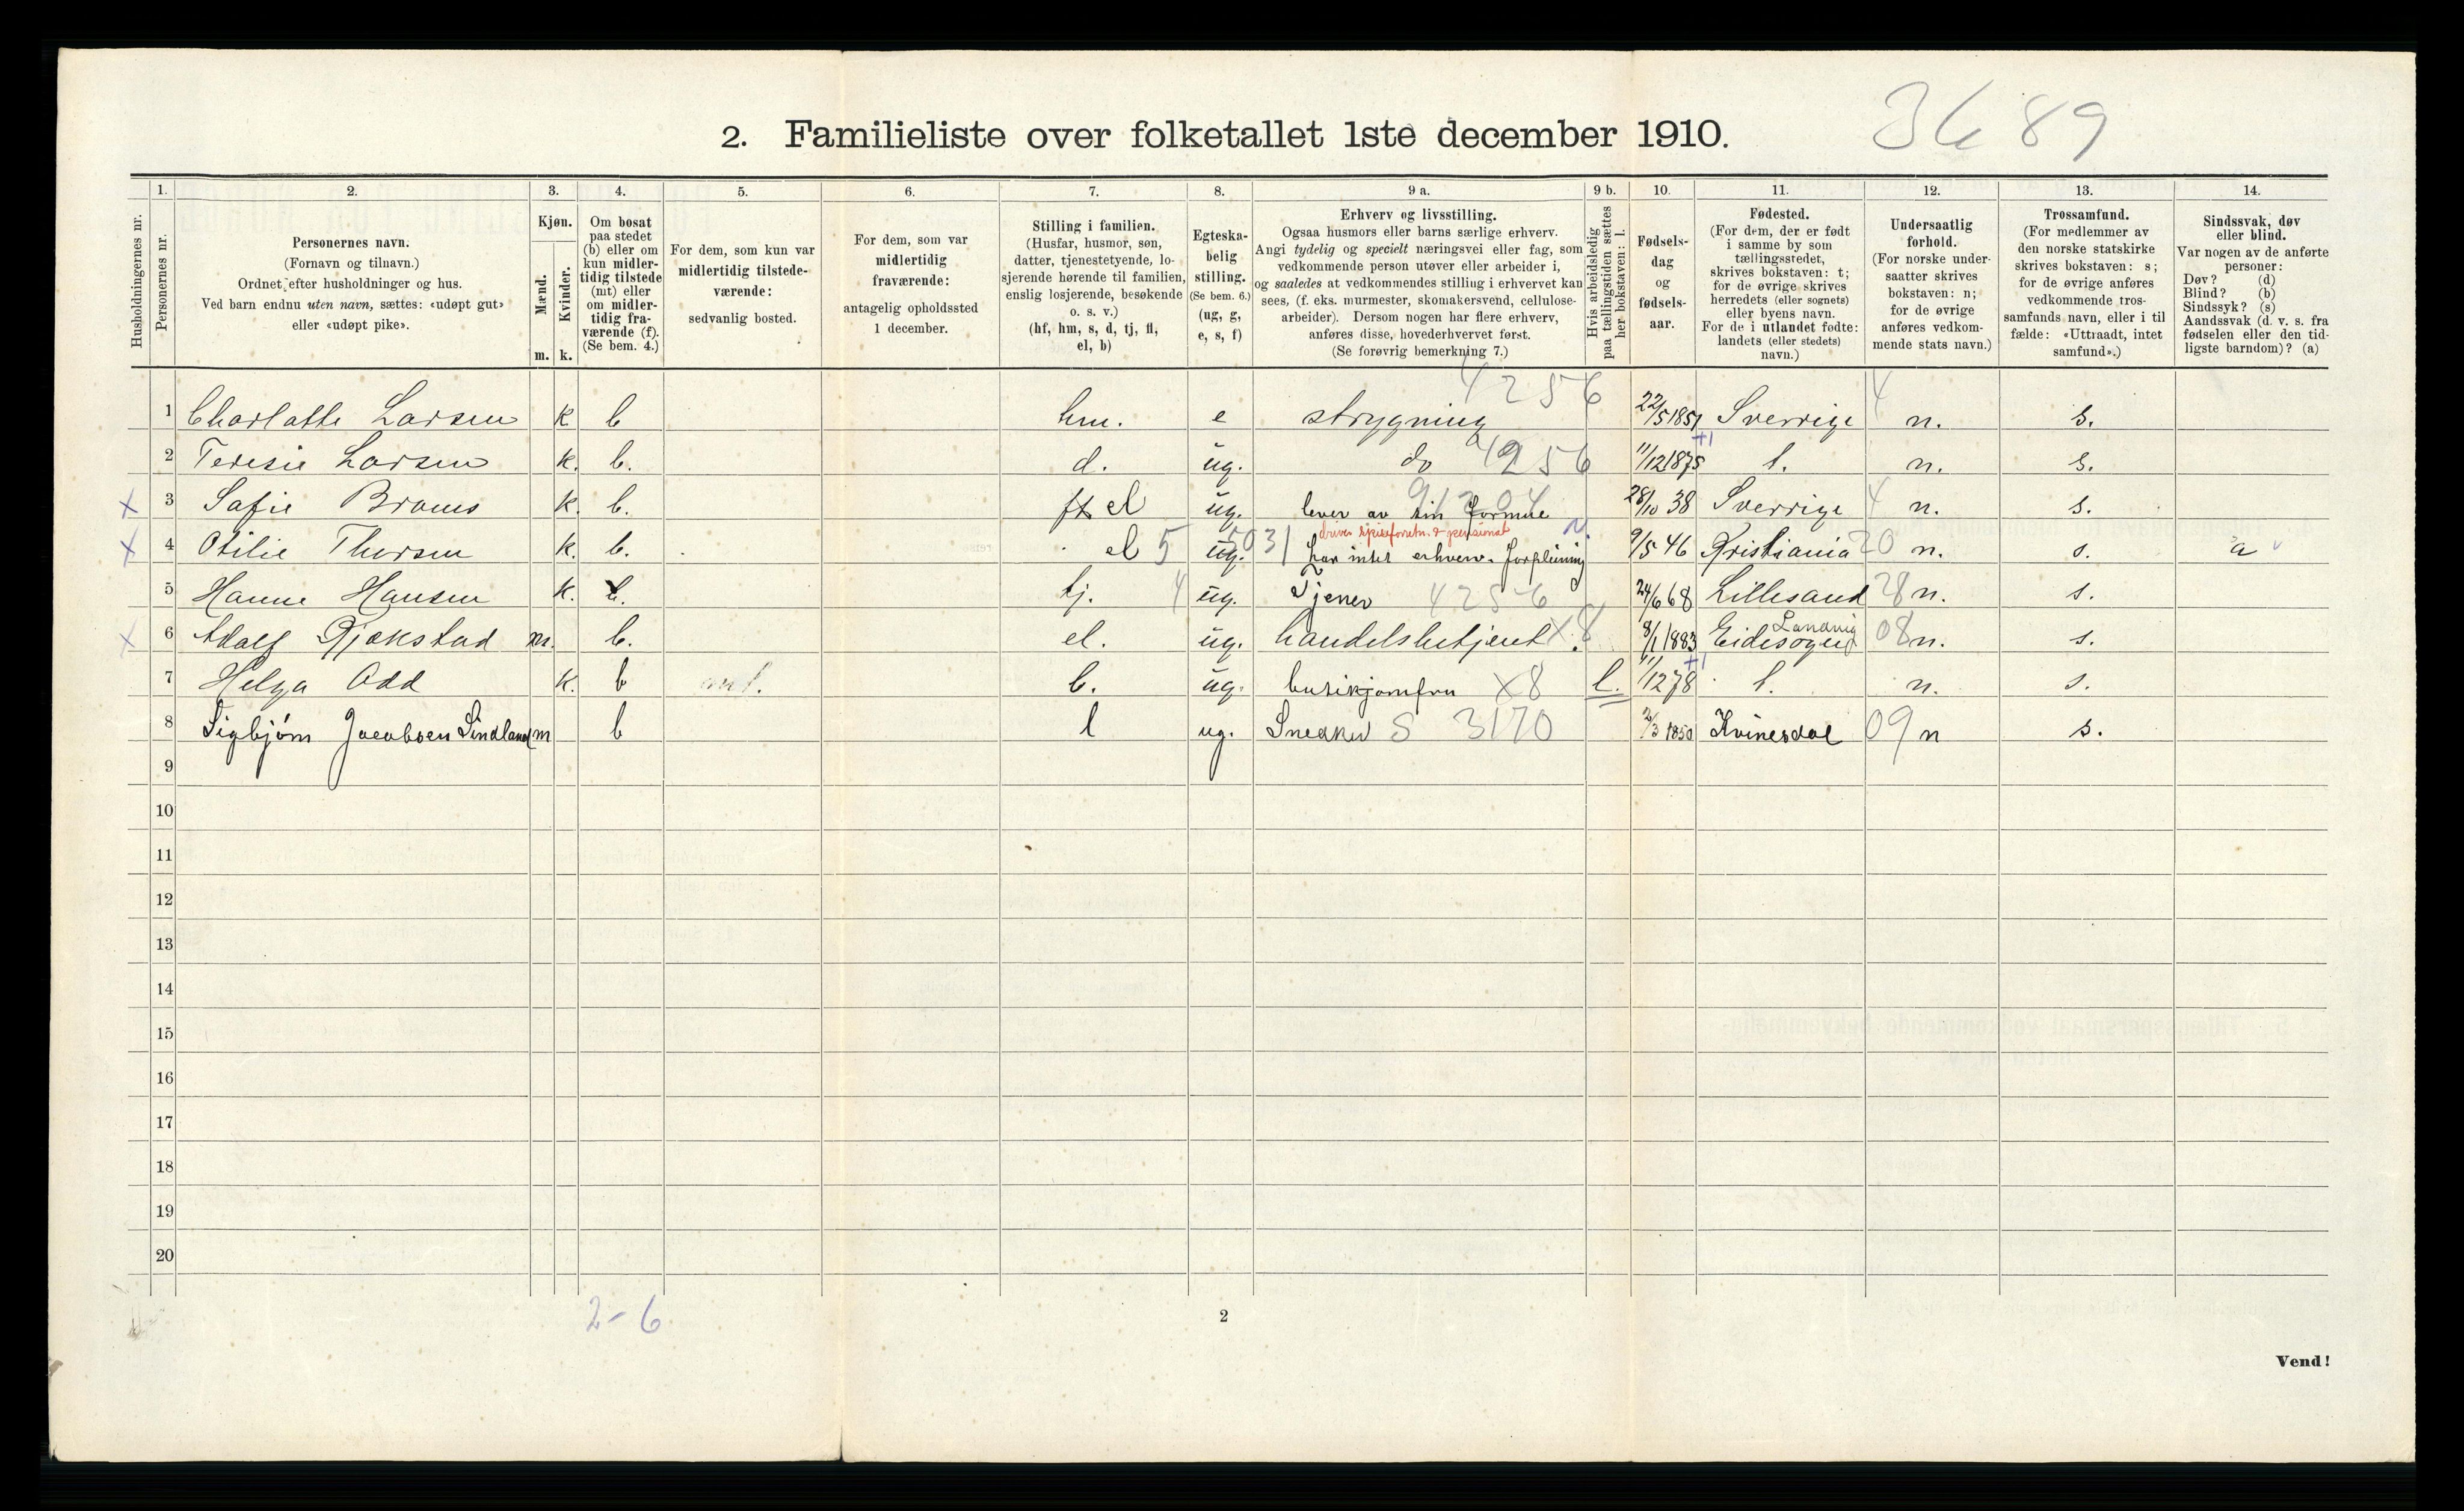 3689
2. Familieliste over folketallet 1ste december 1910.
1. 2. 3. 4. 5. 6. 7. 8. 9 a. 9 b. 10. 11. 12. 13. 14.
Husholdningernes nr.
Personernes nr.
Personernes navn.
(Fornavn og tilnavn.)
Ordnet efter husholdninger og hus.
Ved barn endnu uten navn, sættes: «udøpt gut»
eller «udøpt pike».
Kjøn.
Mænd.
Kvinder.
m. k.
Om bosat
paa stedet
(b) eller om
kun midler-
tidig tilstede
(mt) eller
om midler-
tidig fra-
værende (f).
(Se bem. 4.)
For dem, som kun var
midlertidig tilstede-
værende:
sedvanlig bosted.
For dem, som var
midlertidig
fraværende:
antagelig opholdssted
1 december.
Stilling i familien.
(Husfar, husmor, søn,
datter, tjenestetyende, lo-
sjerende hørende til familien,
enslig losjerende, besøkende
o. s. v.)
(hf, hm, s, d, tj, fl,
el, b)
Egteska-
belig
stilling.
(Se bem. 6.)
(ug, g,
e, s, f)
Erhverv og livsstilling.
Ogsaa husmors eller barns særlige erhverv.
Angi tydelig og specielt næringsvei eller fag, som
vedkommende person utøver eller arbeider i,
og saaledes at vedkommendes stilling i erhvervet kan
sees, (f. eks. murmester, skomakersvend, cellulose-
arbeider). Dersom nogen har flere erhverv,
anføres disse, hovederhvervet først.
(Se forøvrig bemerkning 7.)
Hvis arbeidsledig
paa tællingstiden sættes
her bokstaven: l.
Fødsels-
dag
og
fødsels-
aar.
Fødested.
(For dem, der er født
i samme by som
tællingsstedet,
skrives bokstaven: t;
for de øvrige skrives
herredets (eller sognets)
eller byens navn.
For de i utlandet fødte:
landets (eller stedets)
navn.)
Undersaatlig
forhold.
(For norske under-
saatter skrives
bokstaven: n;
for de øvrige
anføres vedkom-
mende stats navn.)
Trossamfund.
(For medlemmer av
den norske statskirke
skrives bokstaven: s;
for de øvrige anføres
vedkommende tros-
samfunds navn, eller i til-
fælde: «Uttraadt, intet
samfund».)
Sindssvak, døv
eller blind.
Var nogen av de anførte
personer:
Døv? (d)
Blind? (b)
Sindssyk? (s)
Aandssvak (d. v. s. fra
fødselen eller den tid-
ligste barndom)? (a)
1 Charlotte Larsen k b hm. e strygning 4256 22/5 1851 Sverrige 4 n. s.
2 Teresie Larsen k. b. d. ug. do 4256 11/12 1875 +1 t. n. s.
x 3 Sofie Broms k. b. el ug. lever av sin formue 91204 28/10 38 Sverrige 4 n. s.
driver spiseforretn. & pensionat
x 4 Otilie Thorsen k. b. el 5 ug. 5031 har intet erhverv. forpleining 9/5 46 Kristiania 20 n. s. a
5 Hanne Hansen k. b. tj. 4 ug. Tjener 4256 24/6 68 Lillesand 28 n. s.
x 6 Adolf Gjækstad m. b. el. ug. handelsbetjent x8 8/1 1883 Eidesogn Landvig 08 n. s.
7 Helga Odd k. b b. ug. butikjomfru x8 l. 11/12 78 +1 t. n. s.
8 Sigbjörn Jacobsen Lindland m b l ug. Snedker S 3170 2/3 1850 Kvinesdal 09 n s.
9
10
11
12
13
14
15
16
17
18
19
20
2-6
2
Vend!